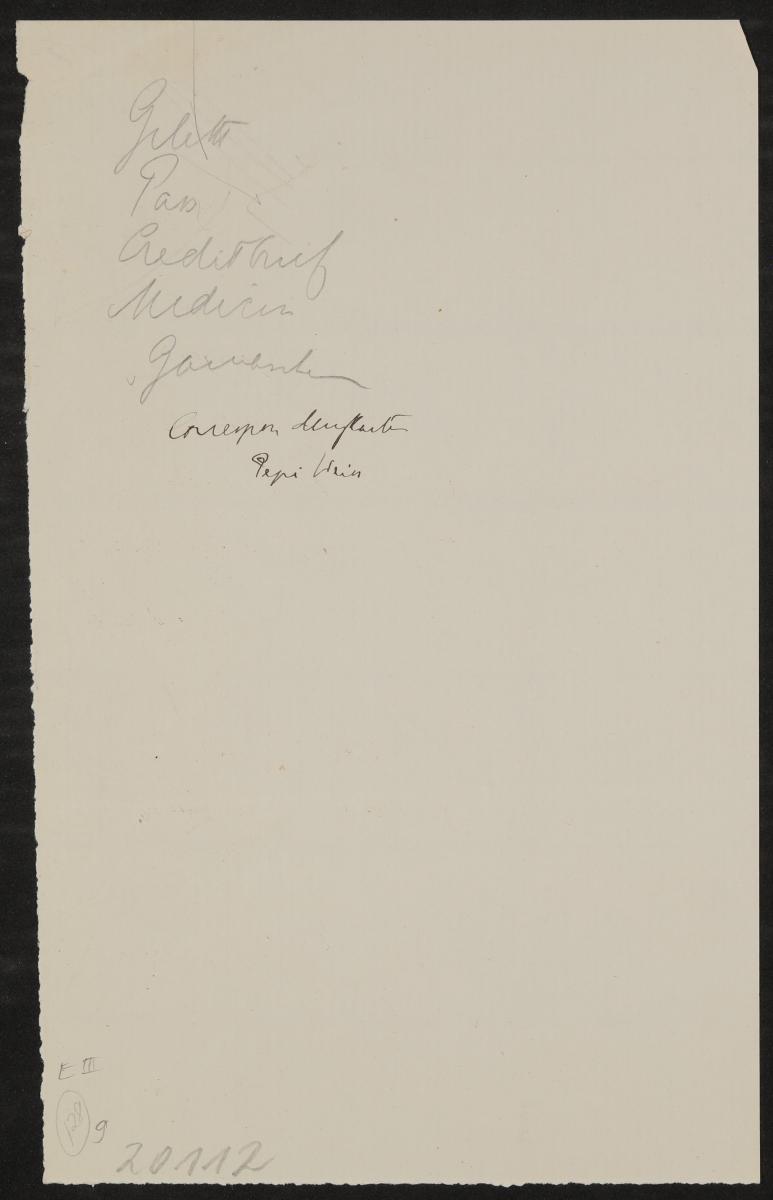 Gilette
Pass
Creditbrief
Medicin
Gamaschen
Correspondenzkarten
Pepi Wein
E III
128
9
20112